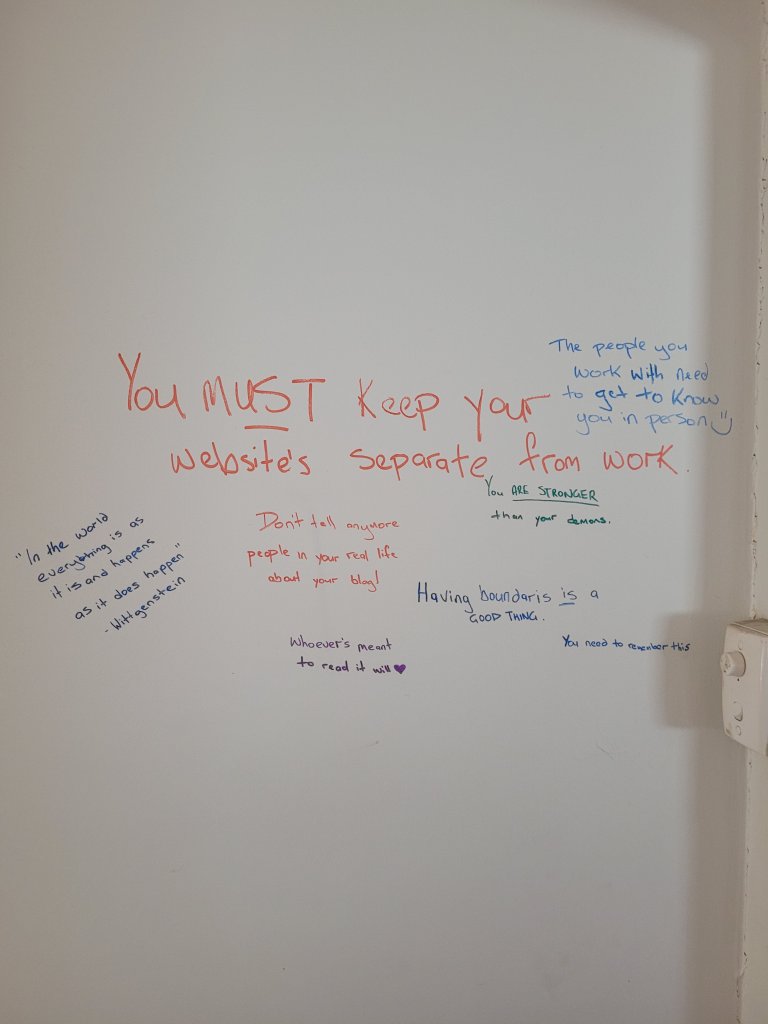 You MUST Keep your
website's separate from work.
The people you
work with need
to get to know
you in person
You ARE STRONGER
than your demons.
"In the world
everything is as
it is and happens
as it does happen"
- Wittgenstein
Don't tell anymore
people in your real life
about your blog!
Having boundaris is a
GOOD THING.
Whoever's meant
to read it will ♥
You need to remember this